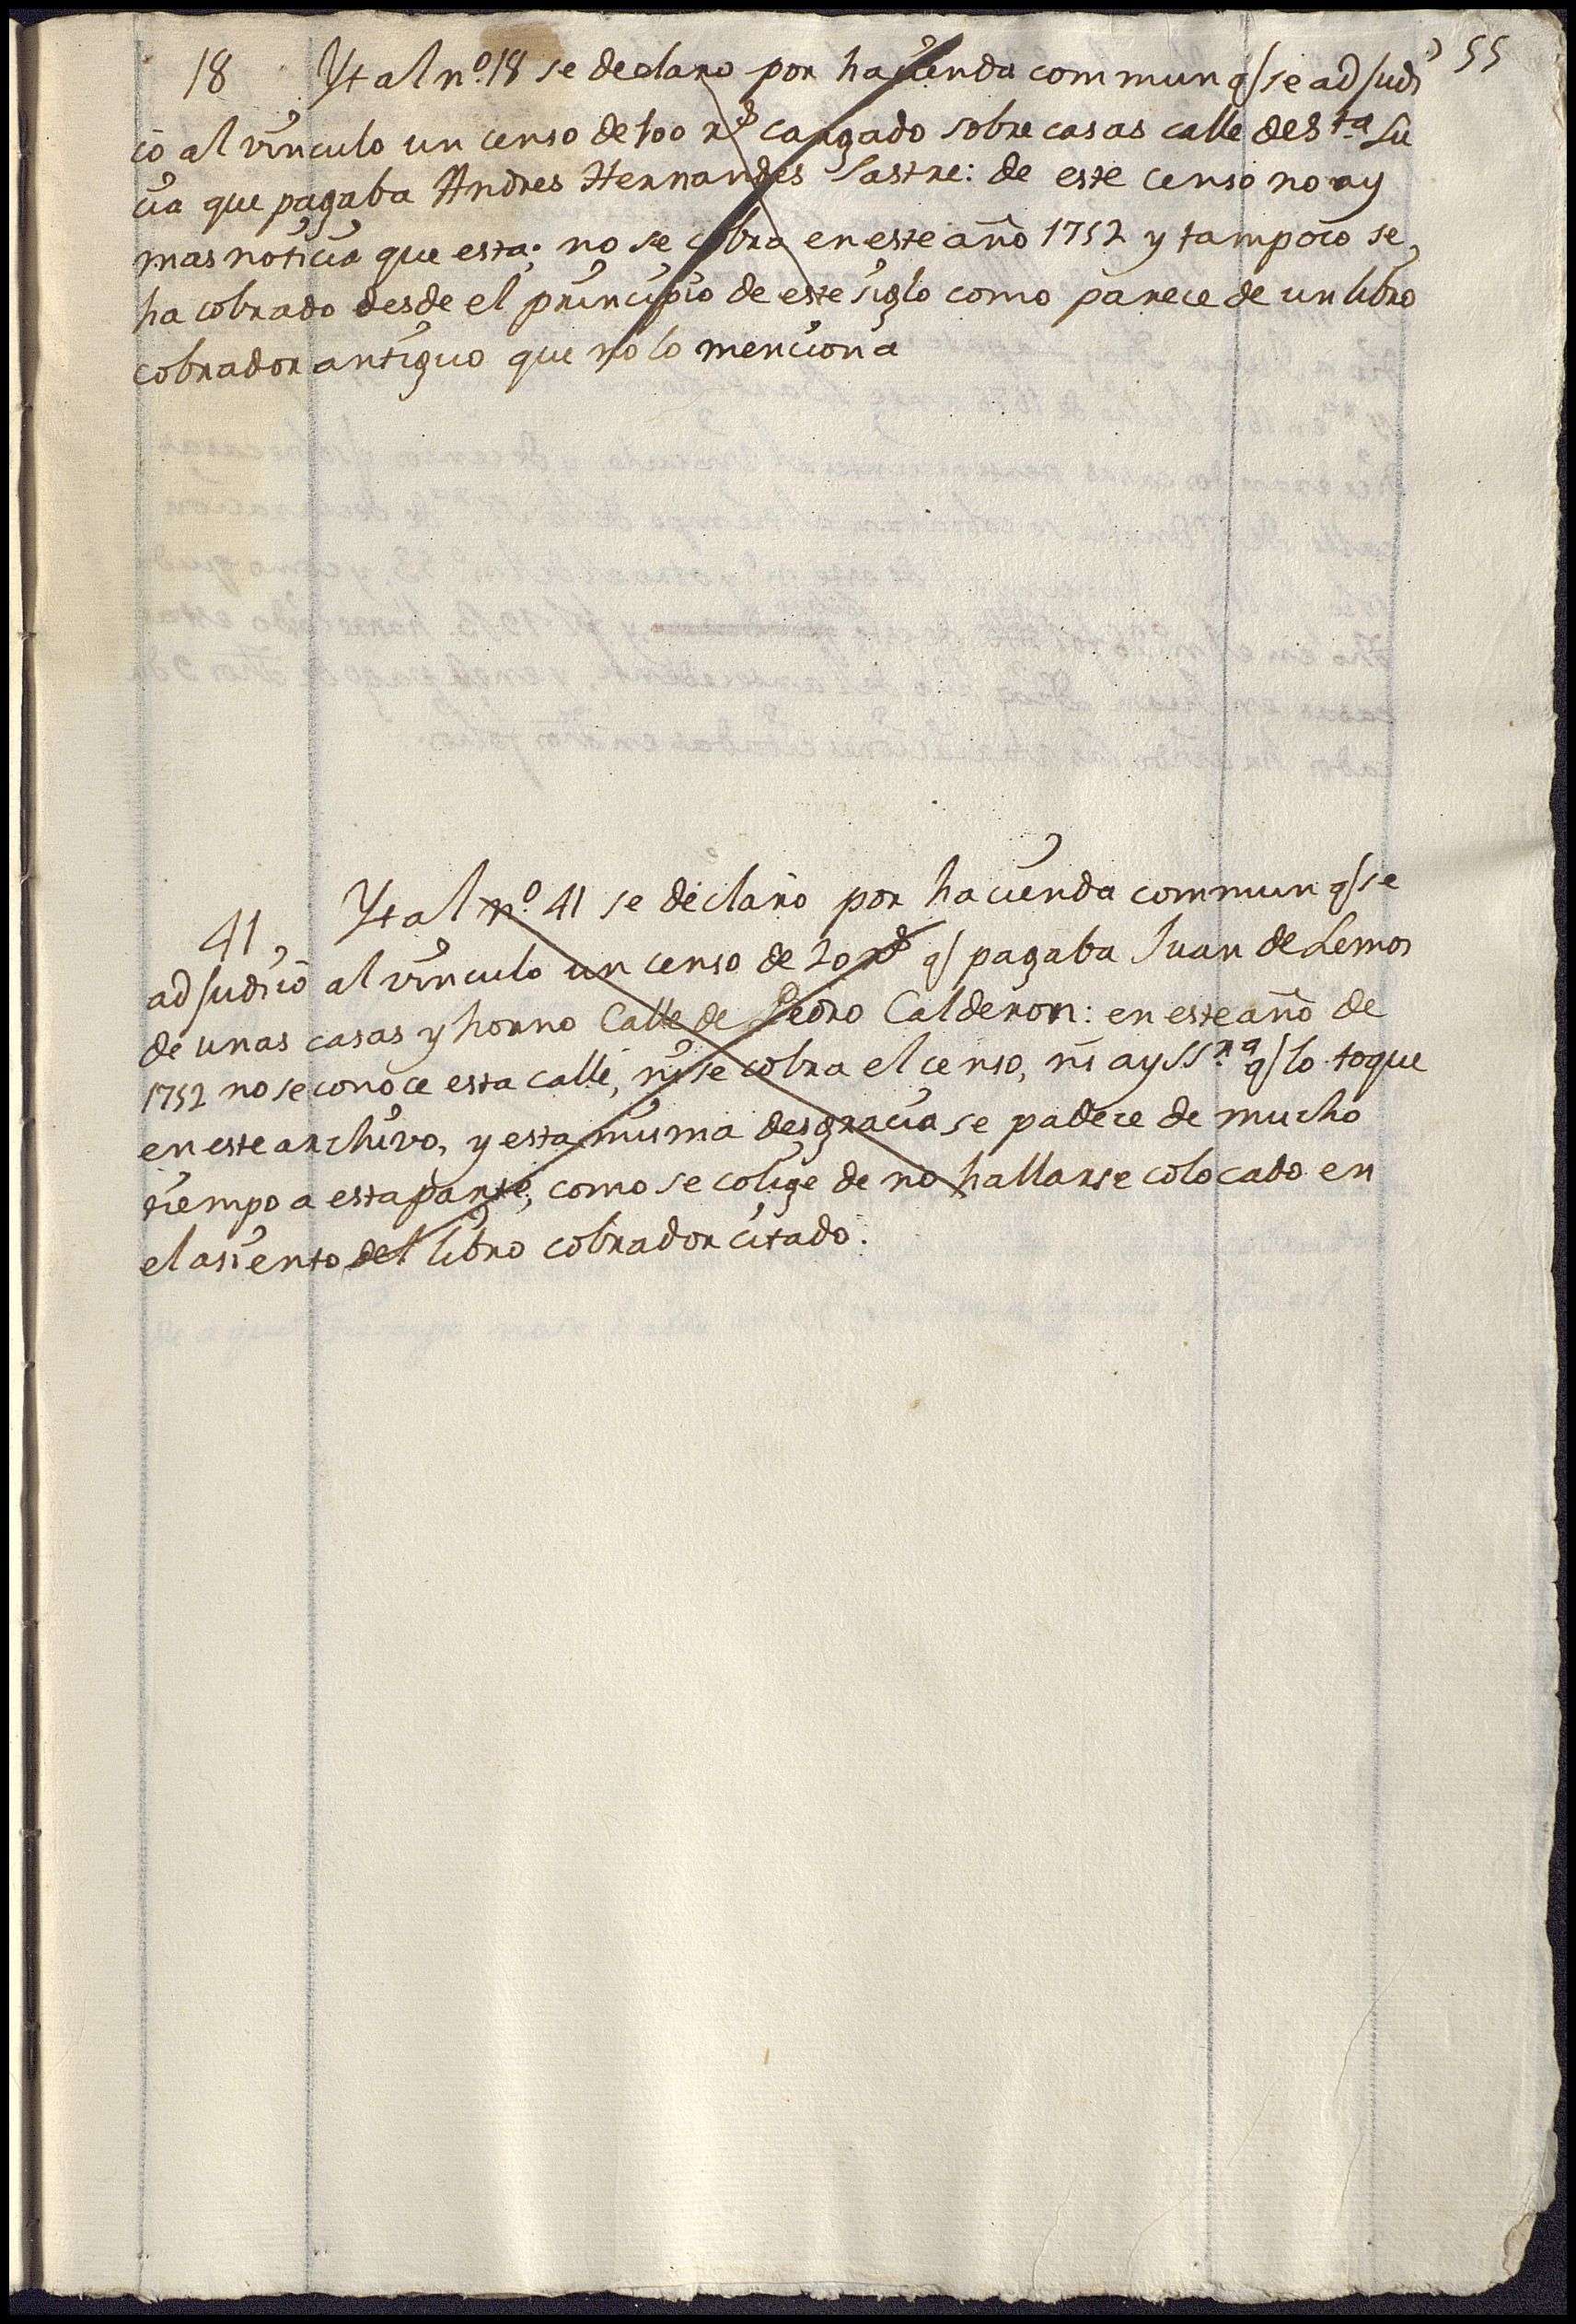 55
18 Yt al nº. 18 se declaro por hacienda commun q/ se adjudi
có al vinculo un censo de 100 rs cargado sobre casas calle de Sta Lu
cia que pagaba Andres Hernandes Sastre: de este censo no ay
mas noticia que esta: no se cobra en este año 1752 y tampoco se
ha cobrado desde el principio de este siglo como parece de un libro
cobrador antiguo que no lo menciona
41, Yt al nº. 41 se declaro por hacienda commun q/ se
adjudicó al vinculo un censo de 20 rs q/ pagaba Juan de Lemos
de unas casas y horno Calle de Pedro Calderon: en este año de
1752 no se conoce esta calle, ni se cobra el censo, ni ay SSra q/ lo toque
en este archivo, y esta misma desgracia se padece de mucho
tiempo a esta parte, como se colige de no hallarse colocado en
el asiento del libro cobrador citado.